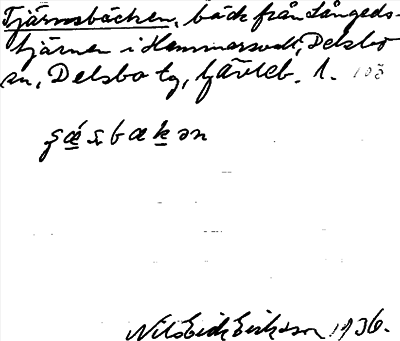 Tjärnsbäcken, bäck från Långeds-
tjärnen i Hammarsvall, Delsbo
sn, Delsbo tg, Gävleb. l. 103
Nils Erik Eriksson 1936.